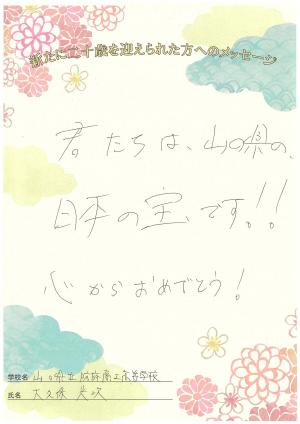 新たに二十歳を迎えられた方へのメッセージ
君たちは、山口県の、
日本の宝です!!
心からおめでとう!
学校名 山口県立 商工高等学校
氏名 大久保